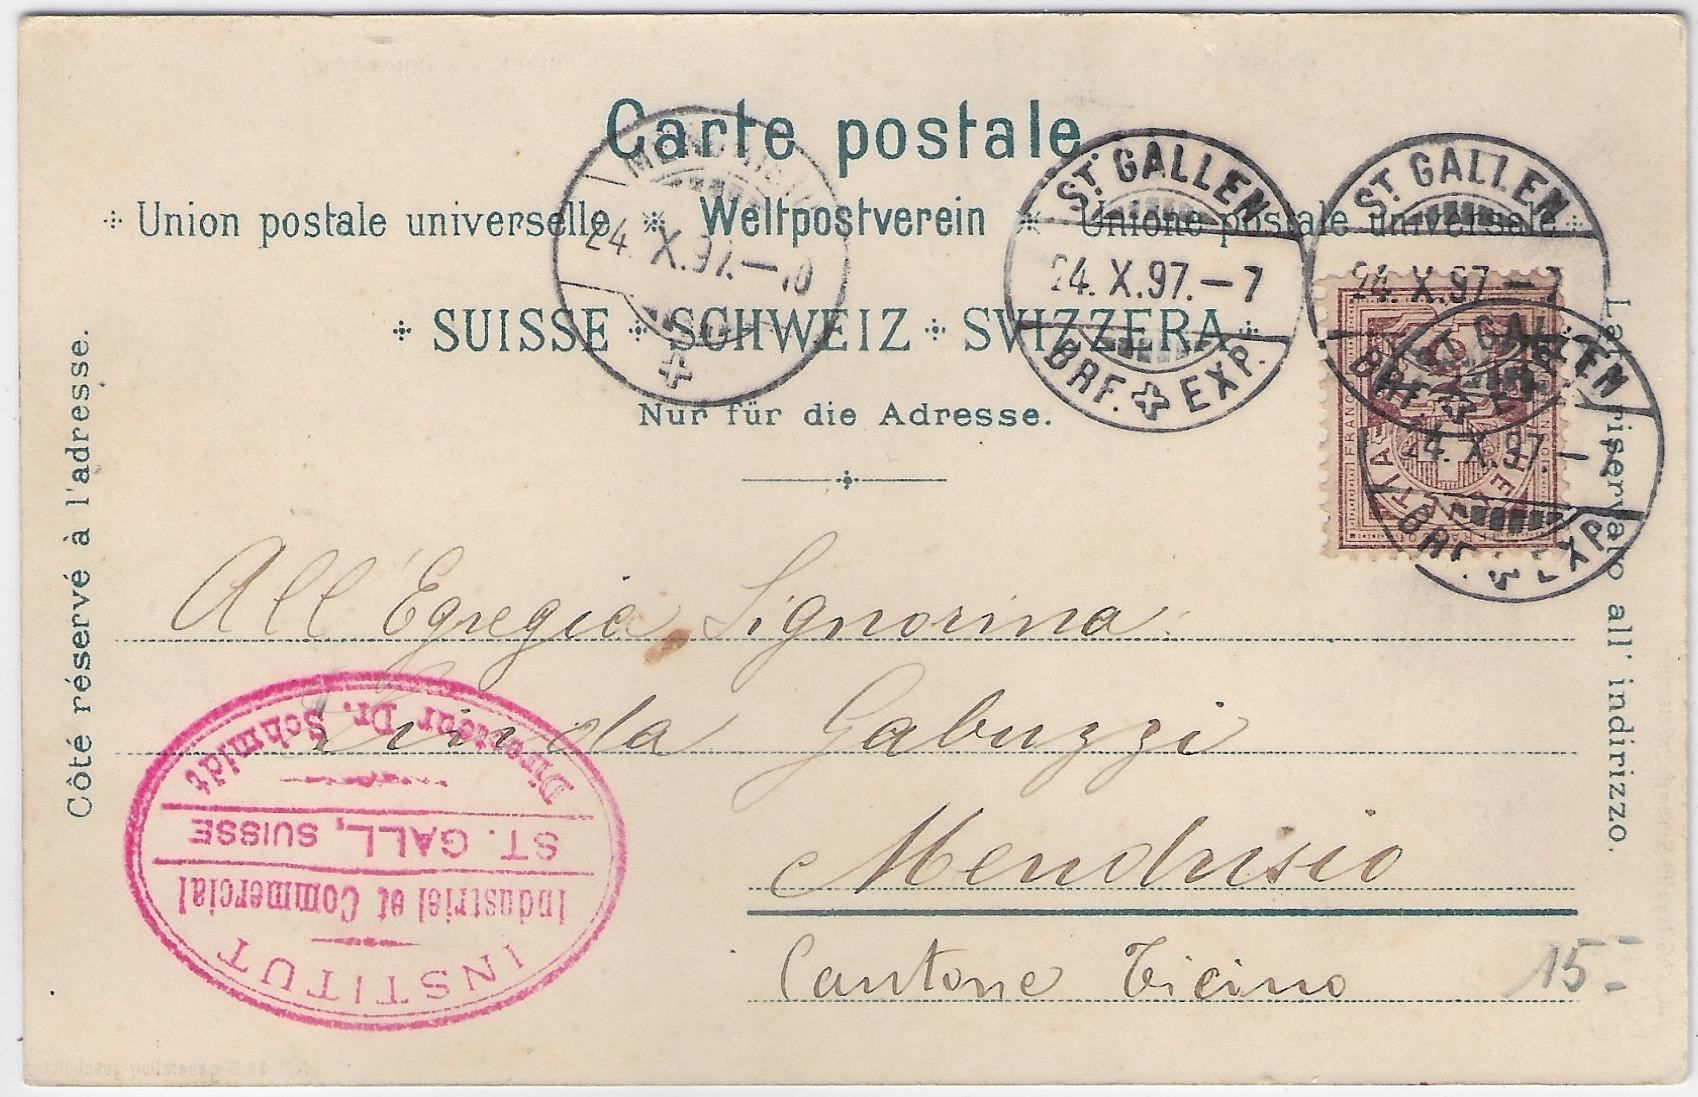 Carte postale
Union postale universelle Weltpostverein Unione postale universale
SUISSE SCHWEIZ SVIZZERA
Nur für die Adresse.
Côté réservé à l'adresse.
Lato riservato all'indirizzo.
24. X. 97. — 10
ST. GALLEN
24. X. 97. — 7
BRF. EXP.
ST. GALLEN
24. X. 97 — 7
BRF. EXP.
ST. GALLEN
24. X. 97. — 7
BRF. EXP.
FRANCO
All' Egregia Signorina
Linda Gabuzzi
Mendrisio
Cantone Ticino
15.-
INSTITUT
Industriel et Commercial
ST. GALL, SUISSE
Directeur Dr. Schmidt